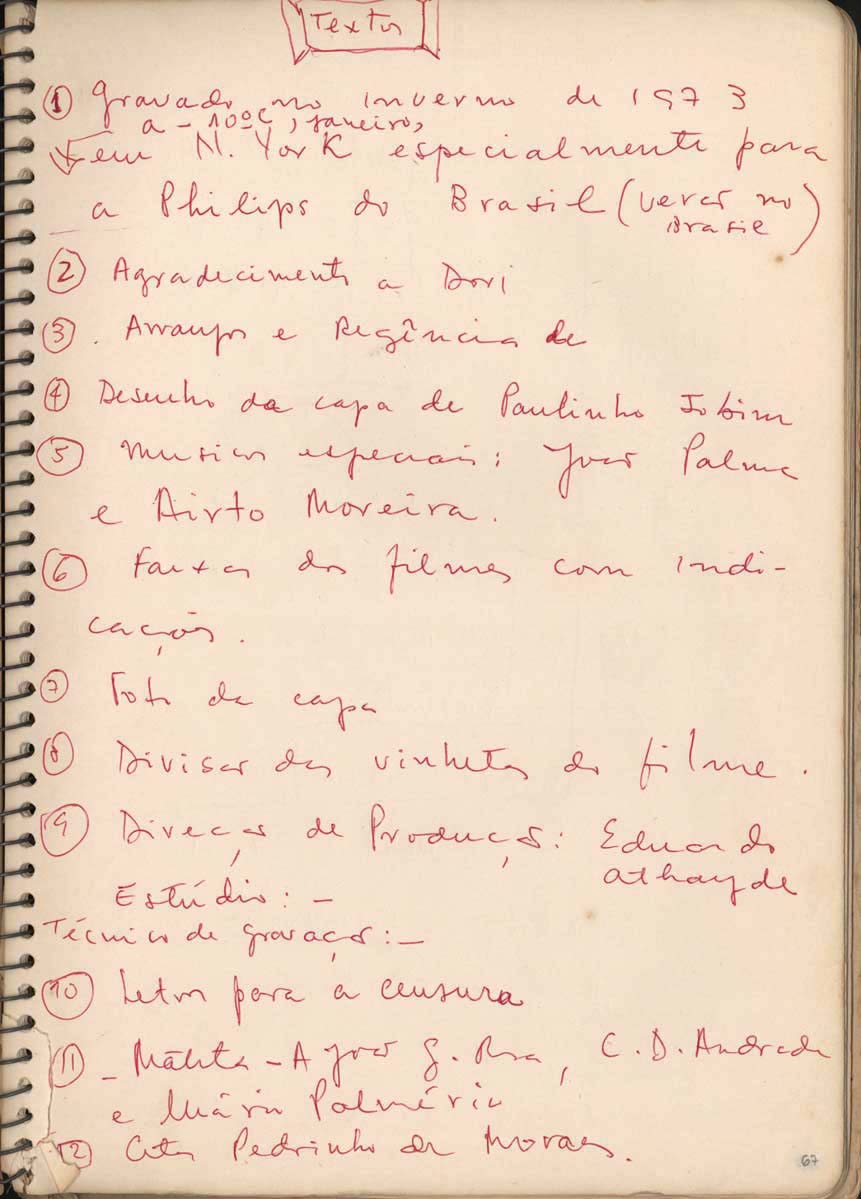 Textos
① Gravado no inverno de 1973
a -10ºC, janeiro,
em N. York especialmente para
a Philips do Brasil (versão no
Brasil)
② Agradecimento a Dori
③ . Arranjos e Regência de
④ Desenho da capa de Paulinho Jobim
⑤ Musicos especiais: João Palma
e Airto Moreira.
⑥ Faixas dos filmes com indi-
cações.
⑦ Foto da capa
⑧ Divisão das vinhetas do filme.
⑨ Direção de Produção: Eduardo
Athayde
Estúdio: -
Técnico de gravação: -
⑩ Letras para a censura
⑪ - Matita - A João G. Rosa, C. D. Andrade
e Mário Palmério
⑫ Citar Pedrinho de Moraes.
67